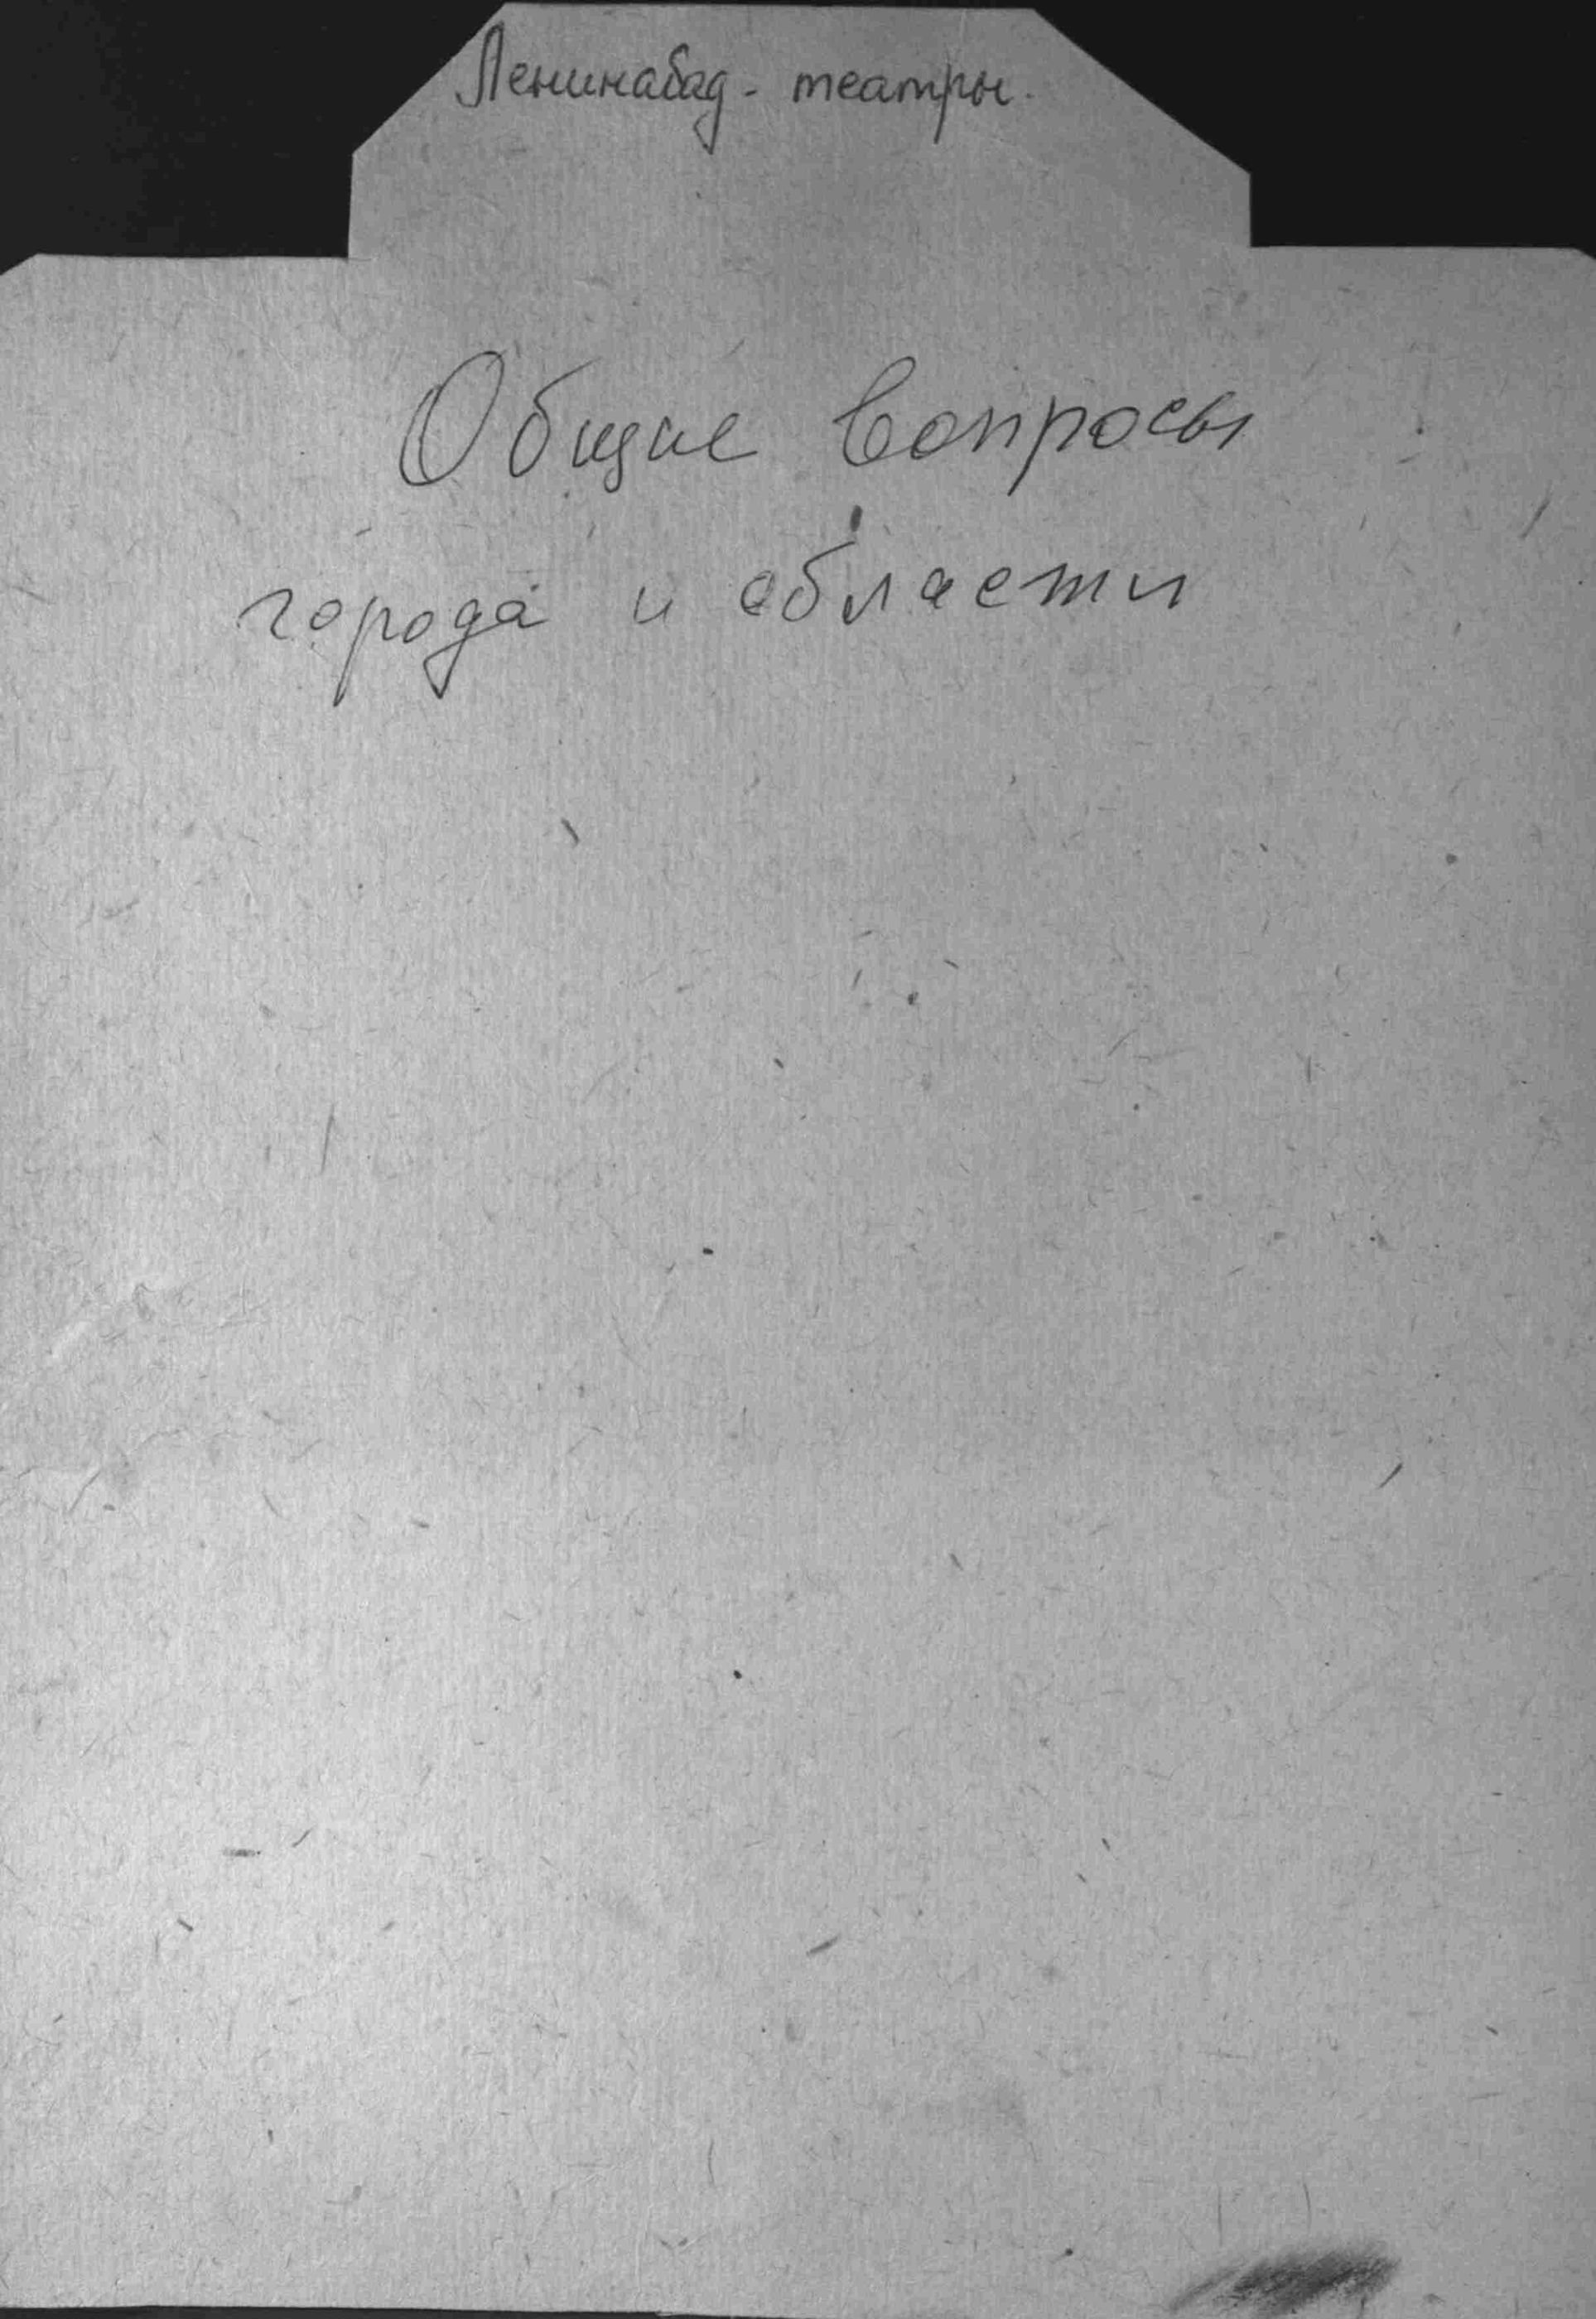 Ленинабад - театры.
Общие вопросы
города и области